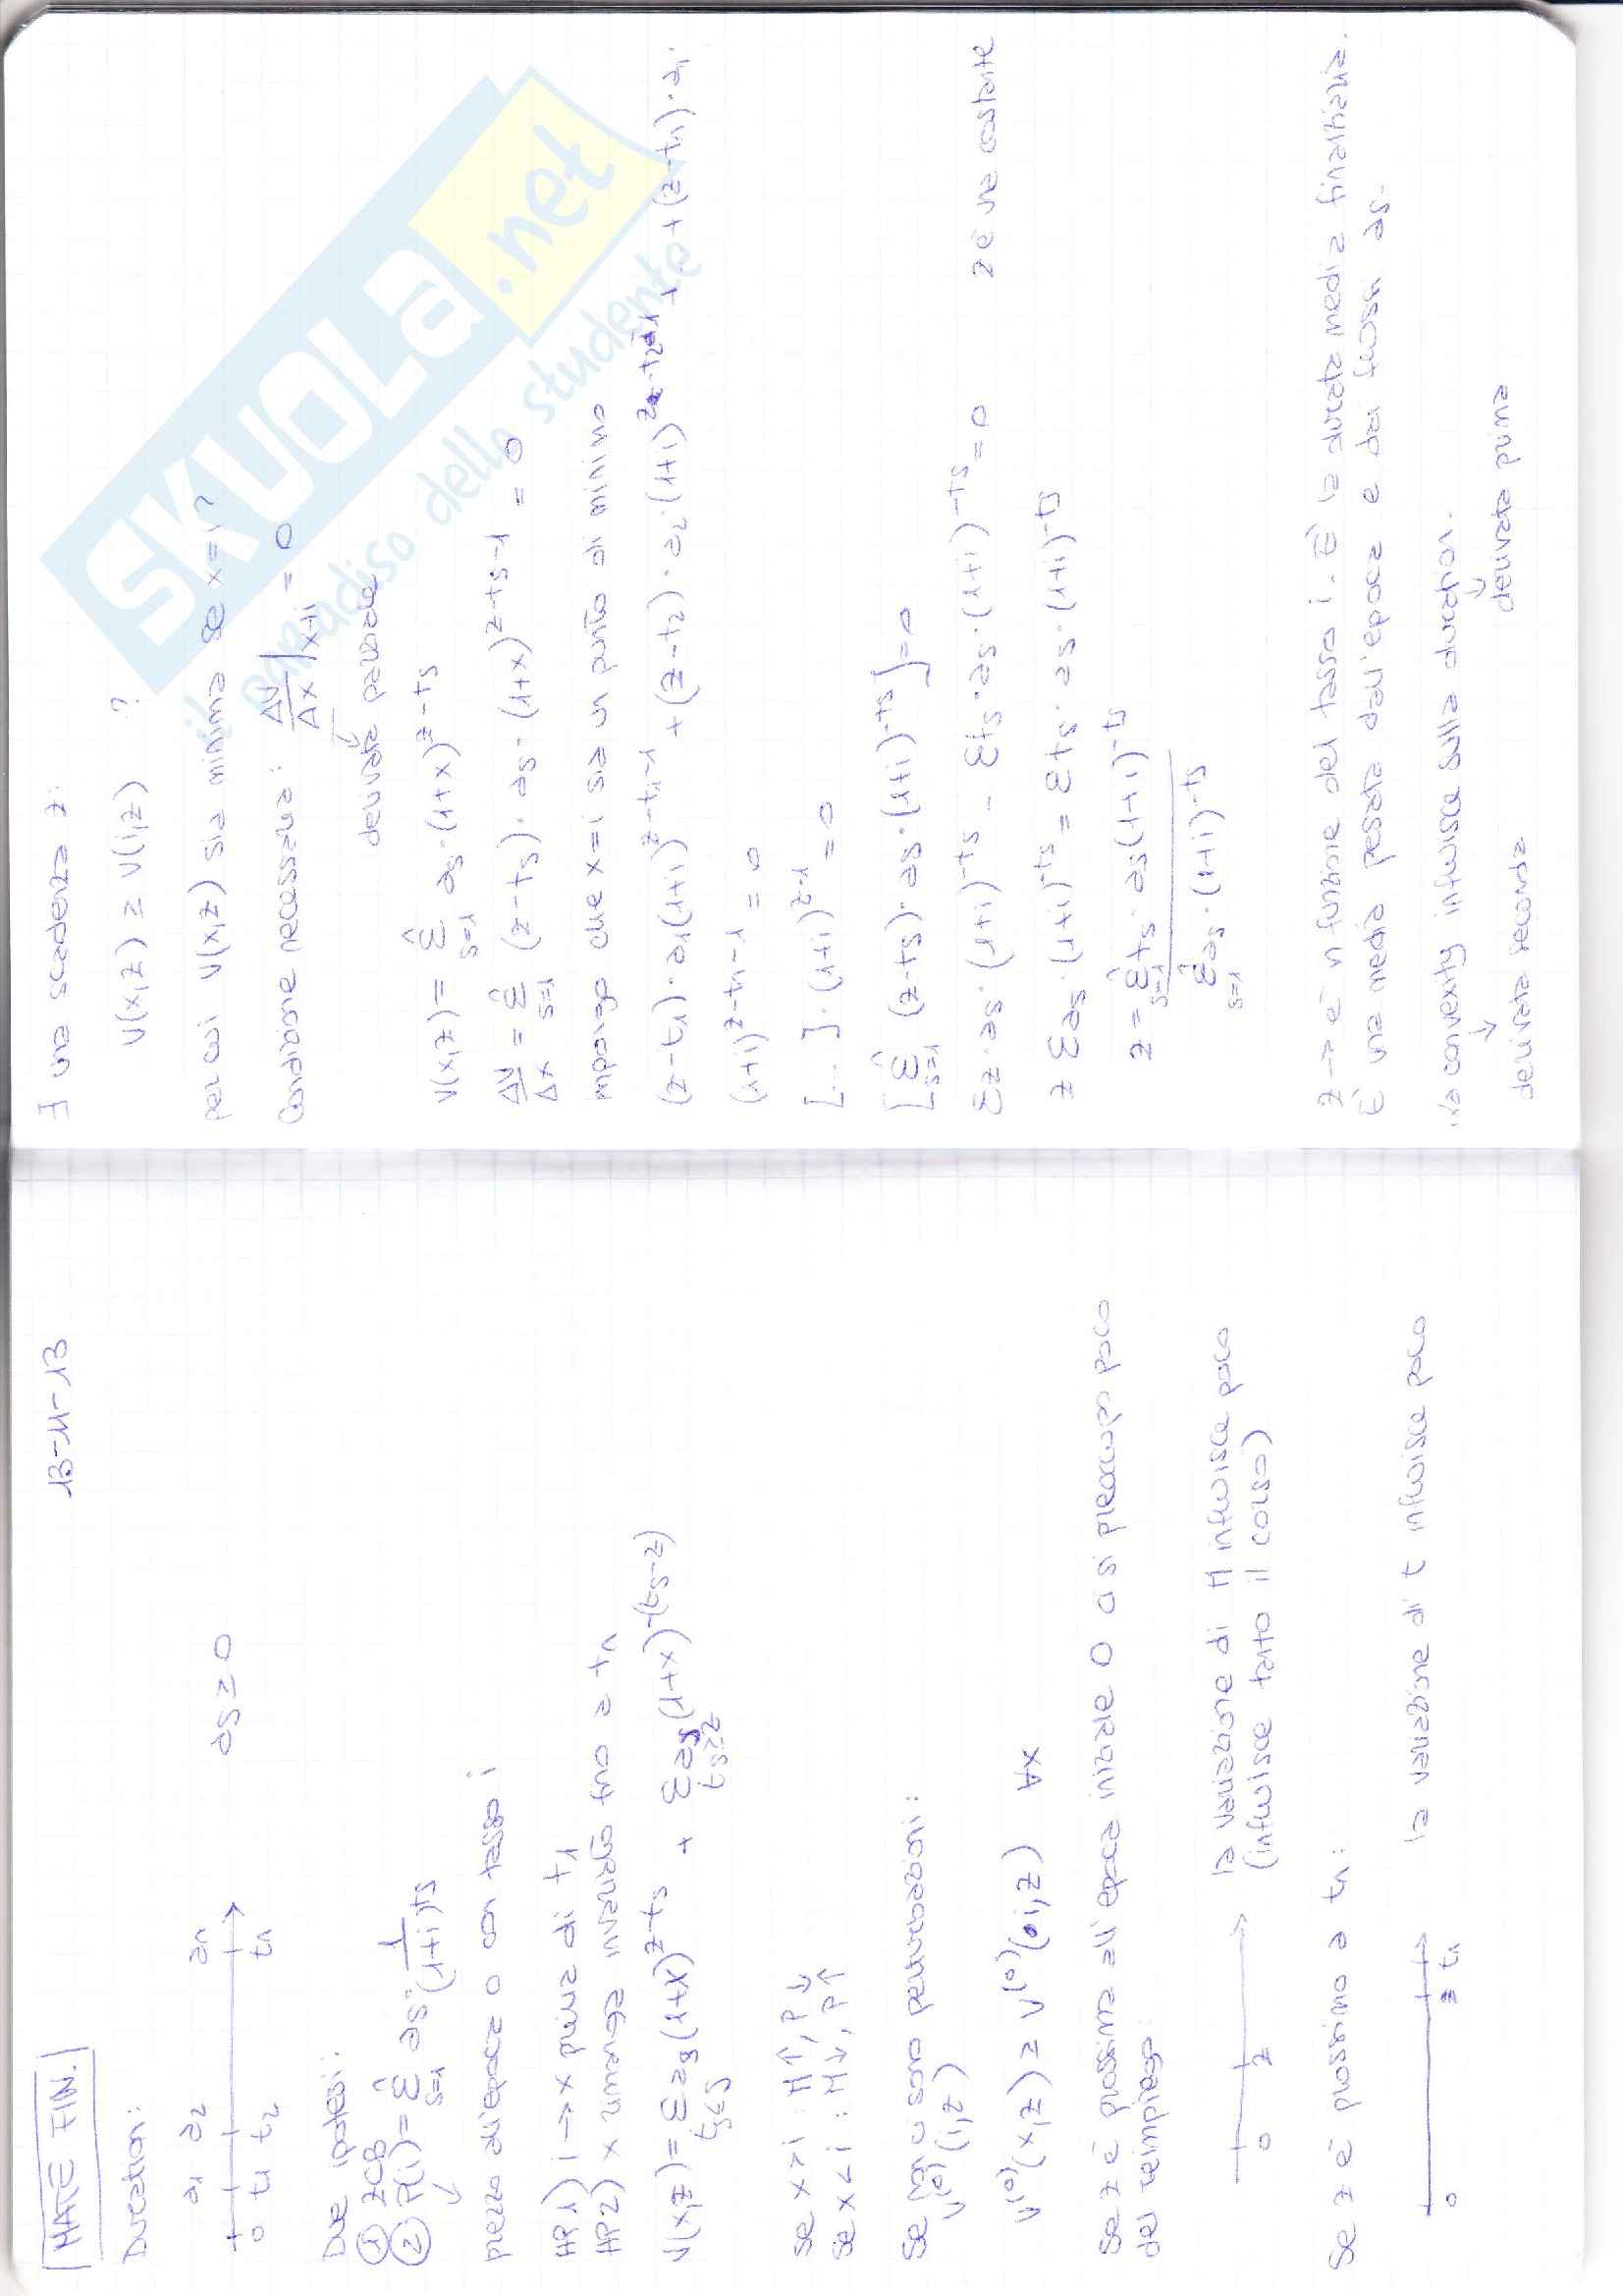 MATE FIN.
13-11-13
Duration:
a1 a2 an
0 t1 t2 tn
as ≥ 0
Due ipotesi:
① ZCB
② P(i) = Σ^n_{s=1} as · (1/(1+i))^ts
prezzo all'epoca 0 con tasso i
HP1) i → x prima di t1
HP2) x rimarrà invariato fino a tn
V(x,z) = Σ_{ts≤z} as (1+x)^{z-ts} + Σ_{ts≥z} as (1+x)^{-(ts-z)}
Se x>i : M↑, P↓
Se x<i : M↓, P↑
Se non ci sono perturbazioni:
V^(0) (i,z)
V^(0)(x,z) ≥ V^(0)(i,z) ∀x
Se z è prossima all'epoca iniziale 0 ci si preoccupa poco
del reimpiego:
0 z
la variazione di M influisce poco
(influisce tanto il corso)
Se z è prossimo a tn:
0 z tn
la variazione di t influisce poco
∃ una scadenza z:
V(x,z) ≥ V(i,z) ?
per cui V(x,z) sia minima se x=i?
Condizione necessaria: ΔV/Δx |x=i = 0
derivata parziale
V(x,z) = Σ^n_{s=1} as · (1+x)^{z-ts}
ΔV/Δx = Σ^n_{s=1} (z-ts) · as · (1+x)^{z-ts-1} = 0
impongo che x=i sia un punto di minimo
(z-t1) · a1(1+i)^{z-t1-1} + (z-t2) · a2 · (1+i)^{z-t2-1} + .. + (z-tn) · an ·
(1+i)^{z-tn-1} = 0
[...] · (1+i)^{z-1} = 0
[Σ^n_{s=1} (z-ts) · as · (1+i)^{-ts}] = 0
Σ z · as · (1+i)^{-ts} - Σ ts · as · (1+i)^{-ts} = 0 z è una costante
z Σ as · (1+i)^{-ts} = Σ ts · as · (1+i)^{-ts}
z = Σ^n_{s=1} ts · as (1+i)^{-ts} / Σ^n_{s=1} as · (1+i)^{-ts}
z → è in funzione del tasso i. È la durata media finanziaria.
È una media pesata dall'epoca e dai flussi as.
La convexity influisce sulla duration.
derivata seconda derivata prima
SKUOLA.net
il paradiso dello studente